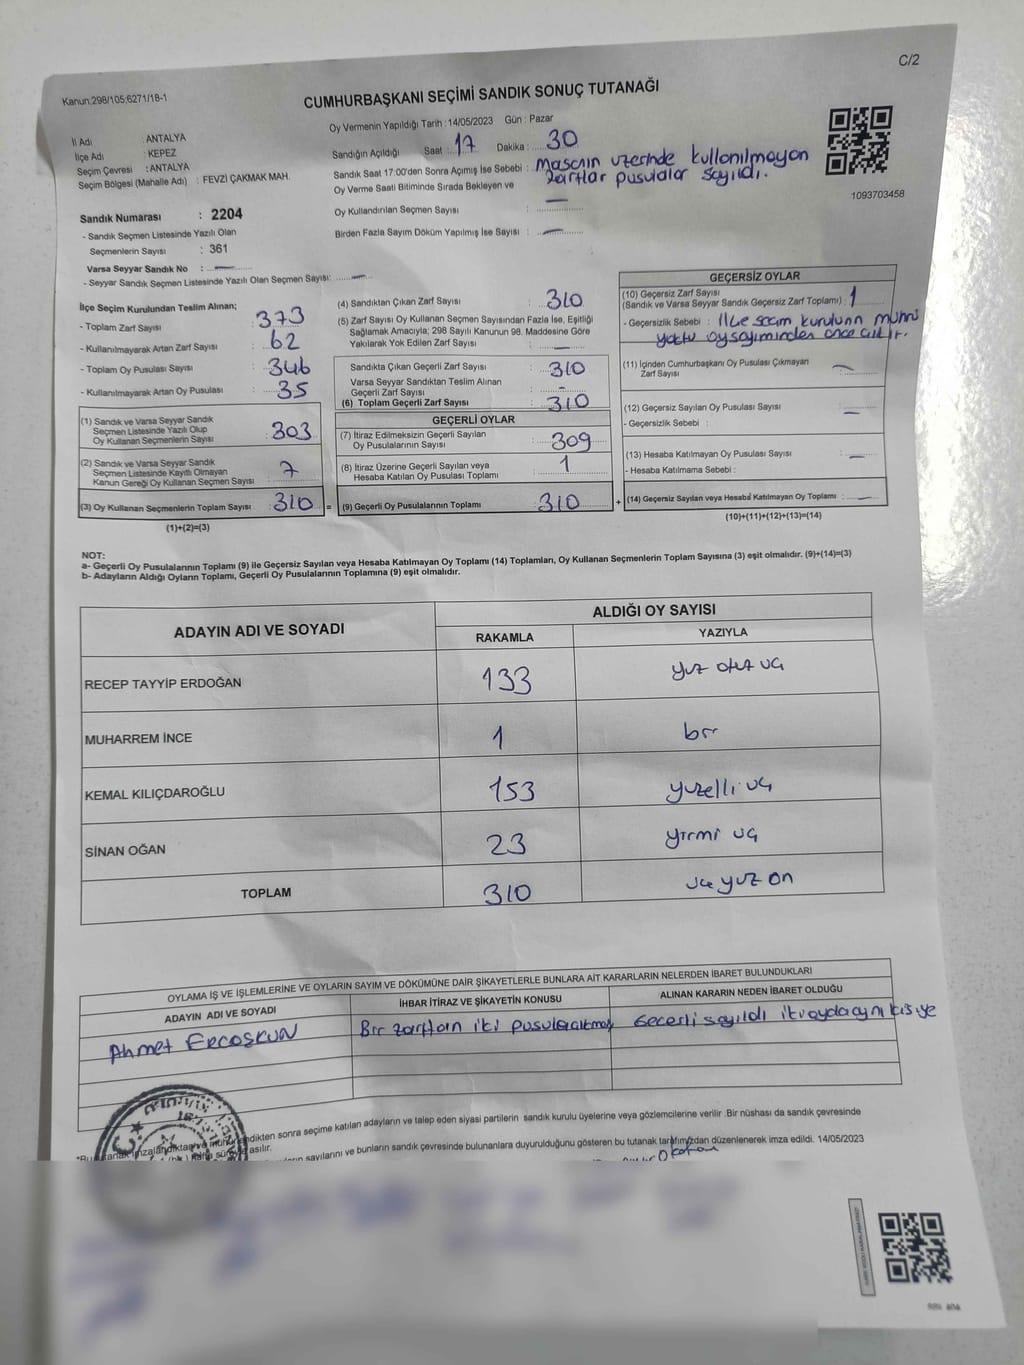 C/2
Kanun:298/105;6271/18-1
CUMHURBAŞKANI SEÇİMİ SANDIK SONUÇ TUTANAĞI
Oy Vermenin Yapıldığı Tarih : 14/05/2023 Gün : Pazar
İl Adı : ANTALYA
İlçe Adı : KEPEZ
Seçim Çevresi : ANTALYA
Seçim Bölgesi (Mahalle Adı) : FEVZİ ÇAKMAK MAH.
Sandığın Açıldığı Saat : 17 Dakika : 30
Sandık Saat 17:00'den Sonra Açımış İse Sebebi : Masanın üzerinde kullanılmayan
zarflar pusulalar sayıldı.
Oy Verme Saati Bitiminde Sırada Bekleyen ve
Oy Kullandırılan Seçmen Sayısı : —
Birden Fazla Sayım Döküm Yapılmış İse Sayısı : —
1093703458
Sandık Numarası : 2204
- Sandık Seçmen Listesinde Yazılı Olan
Seçmenlerin Sayısı : 361
Varsa Seyyar Sandık No : —
- Seyyar Sandık Seçmen Listesinde Yazılı Olan Seçmen Sayısı: —
İlçe Seçim Kurulundan Teslim Alınan;
- Toplam Zarf Sayısı : 373
- Kullanılmayarak Artan Zarf Sayısı : 62
- Toplam Oy Pusulası Sayısı : 346
- Kullanılmayarak Artan Oy Pusulası : 35
(1) Sandık ve Varsa Seyyar Sandık
Seçmen Listesinde Yazılı Olup
Oy Kullanan Seçmenlerin Sayısı : 303
(2) Sandık ve Varsa Seyyar Sandık
Seçmen Listesinde Kayıtlı Olmayan
Kanun Gereği Oy Kullanan Seçmen Sayısı : 7
(3) Oy Kullanan Seçmenlerin Toplam Sayısı : 310 =
(1)+(2)=(3)
(4) Sandıktan Çıkan Zarf Sayısı : 310
(5) Zarf Sayısı Oy Kullanan Seçmen Sayısından Fazla İse, Eşitliği
Sağlamak Amacıyla; 298 Sayılı Kanunun 98. Maddesine Göre
Yakılarak Yok Edilen Zarf Sayısı : —
Sandıkta Çıkan Geçerli Zarf Sayısı : 310
Varsa Seyyar Sandıktan Teslim Alınan
Geçerli Zarf Sayısı : -
(6) Toplam Geçerli Zarf Sayısı : 310
GEÇERLİ OYLAR
(7) İtiraz Edilmeksizin Geçerli Sayılan
Oy Pusulalarının Sayısı : 309
(8) İtiraz Üzerine Geçerli Sayılan veya
Hesaba Katılan Oy Pusulası Toplamı : 1
(9) Geçerli Oy Pusulalarının Toplamı : 310 +
GEÇERSİZ OYLAR
(10) Geçersiz Zarf Sayısı
(Sandık ve Varsa Seyyar Sandık Geçersiz Zarf Toplamı) : 1
- Geçersizlik Sebebi : İlçe seçim kurulunn mührü
yoktu oysayiminden önce
(11) İçinden Cumhurbaşkanı Oy Pusulası Çıkmayan
Zarf Sayısı : —
(12) Geçersiz Sayılan Oy Pusulası Sayısı : —
- Geçersizlik Sebebi :
(13) Hesaba Katılmayan Oy Pusulası Sayısı : —
- Hesaba Katılmama Sebebi :
(14) Geçersiz Sayılan veya Hesaba Katılmayan Oy Toplamı : —
(10)+(11)+(12)+(13)=(14)
NOT:
a- Geçerli Oy Pusulalarının Toplamı (9) ile Geçersiz Sayılan veya Hesaba Katılmayan Oy Toplamı (14) Toplamları, Oy Kullanan Seçmenlerin Toplam Sayısına (3) eşit olmalıdır. (9)+(14)=(3)
b- Adayların Aldığı Oyların Toplamı, Geçerli Oy Pusulalarının Toplamına (9) eşit olmalıdır.
ADAYIN ADI VE SOYADI ALDIĞI OY SAYISI
RAKAMLA YAZIYLA
RECEP TAYYİP ERDOĞAN 133 yüz otuz üç
MUHARREM İNCE 1 bir
KEMAL KILIÇDAROĞLU 153 yüzelli üç
SİNAN OĞAN 23 yirmi üç
TOPLAM 310 üçyüz on
OYLAMA İŞ VE İŞLEMLERİNE VE OYLARIN SAYIM VE DÖKÜMÜNE DAİR ŞİKAYETLERLE BUNLARA AİT KARARLARIN NELERDEN İBARET BULUNDUKLARI
ADAYIN ADI VE SOYADI İHBAR İTİRAZ VE ŞİKAYETİN KONUSU ALINAN KARARIN NEDEN İBARET OLDUĞU
Ahmet ERCOŞKUN Bir zarftan iki pusula çıkması Geçerli sayıldı iki oyda aynı kişiye
dikten sonra seçime katılan adayların ve talep eden siyasi partilerin sandık kurulu üyelerine veya gözlemcilerine verilir .Bir nüshası da sandık çevresinde
asılır.
sayılarını ve bunların sandık çevresinde bulunanlara duyurulduğunu gösteren bu tutanak tarafımızdan düzenlenerek imza edildi. 14/05/2023